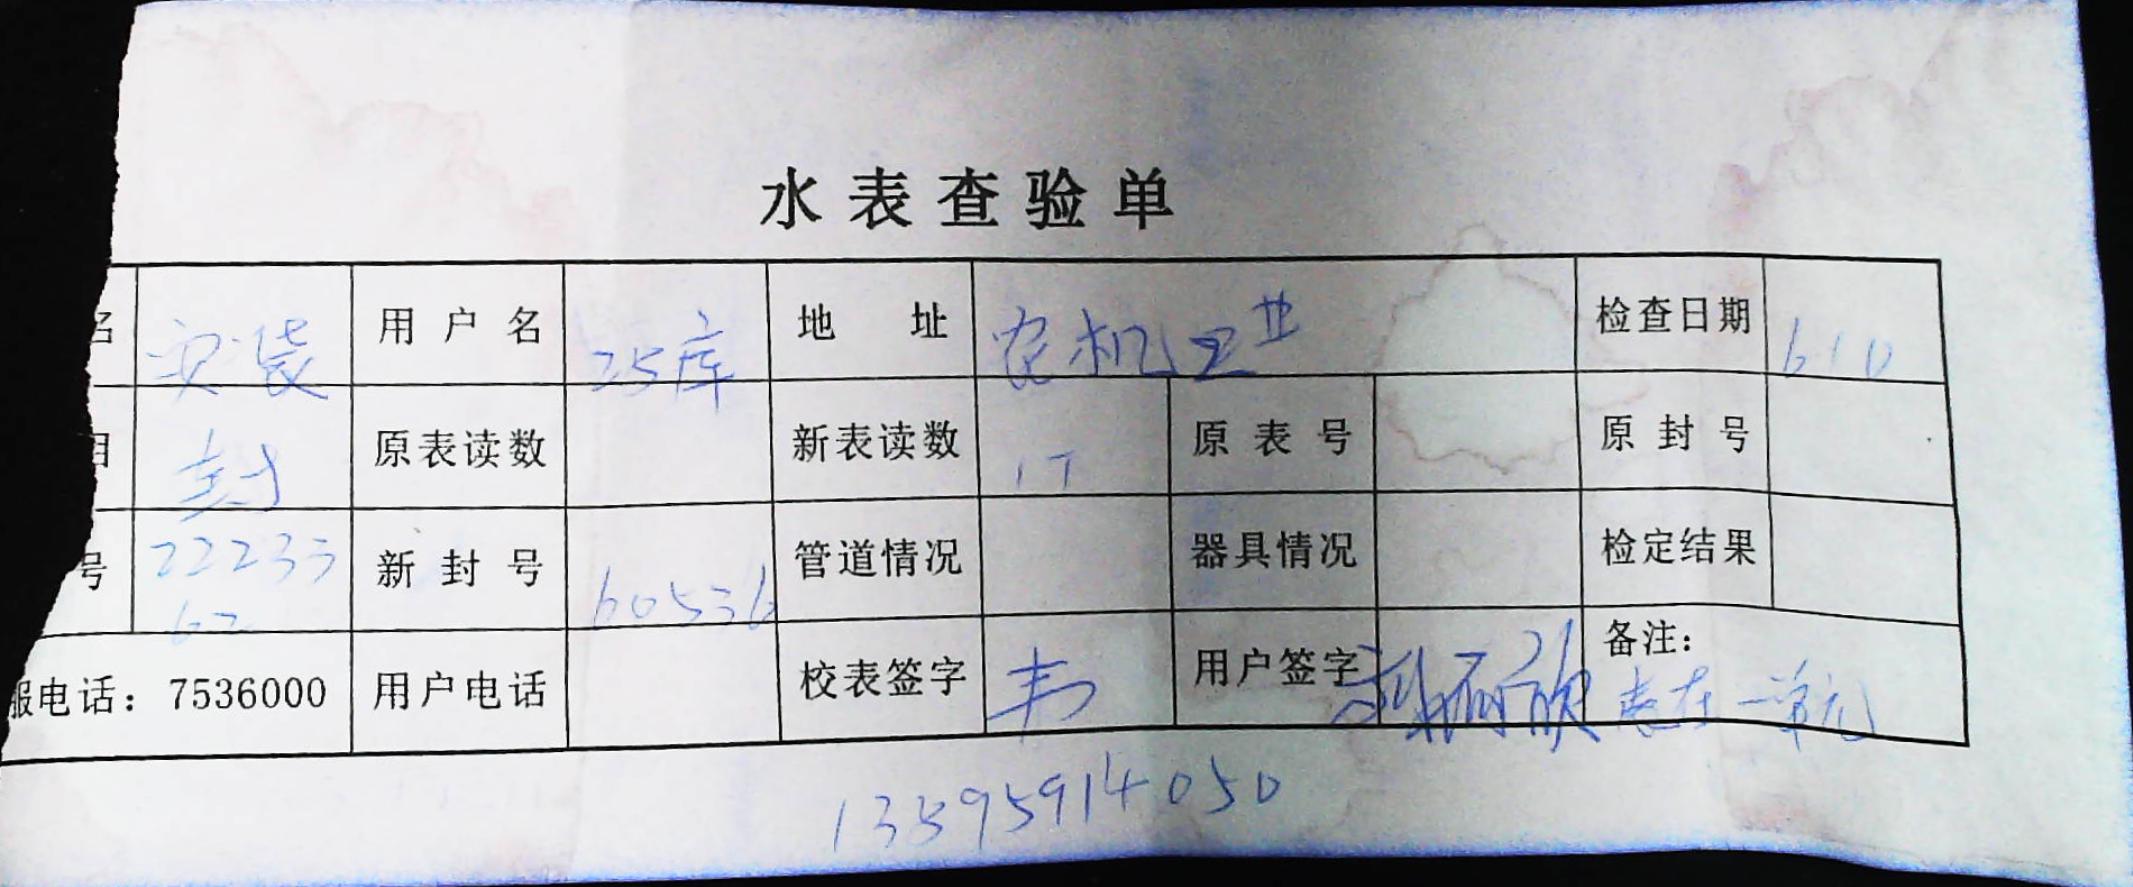 水表查验单
名 安装 用户名 25库 地址 农机工业 检查日期 610
封 原表读数 新表读数 17 原表号 原封号
号 2223362 新封号 60536 管道情况 器具情况 检定结果
服电话：7536000 用户电话 校表签字 韦 用户签字 备注：表在一单元
13895914050